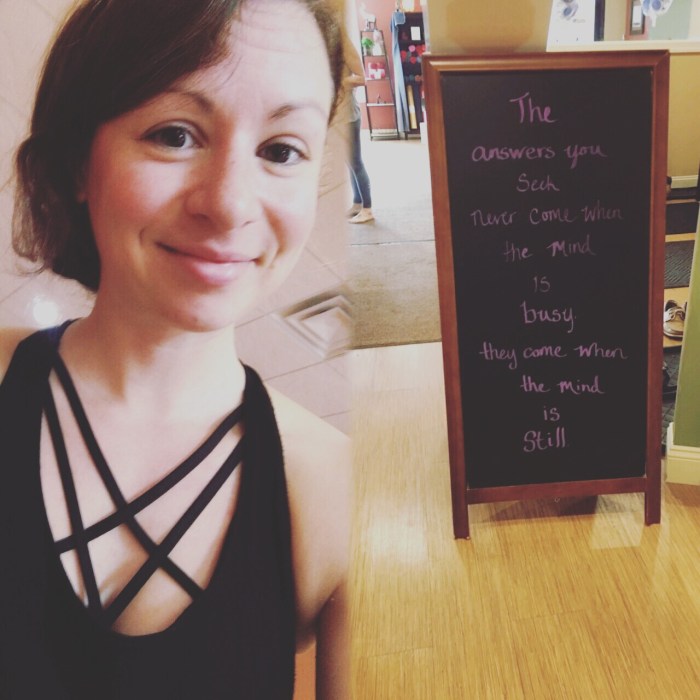 The
answers you
Seek
never come when
the mind
is
busy.
they come when
the mind
is
Still